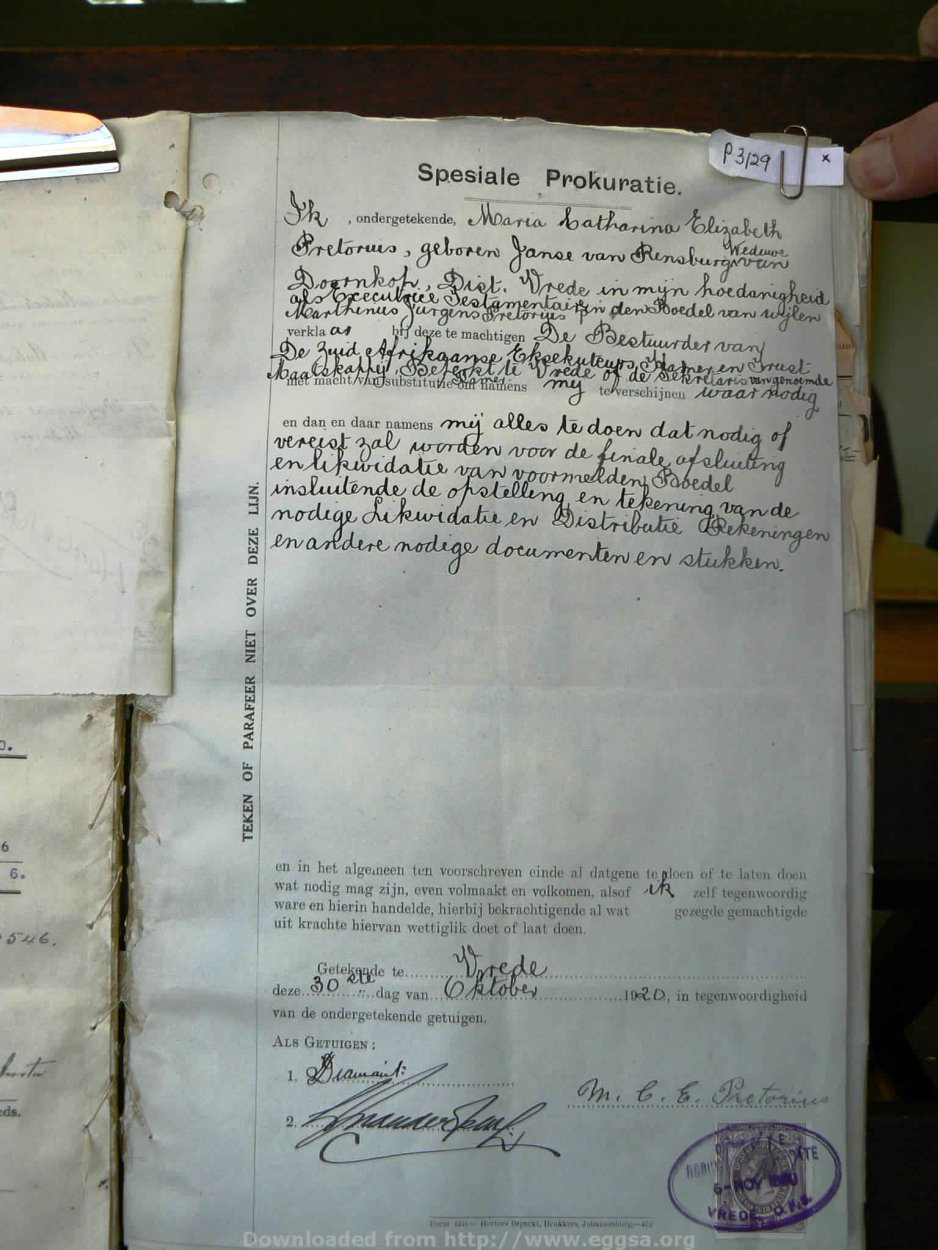 P3/29 x
Spesiale Prokuratie.
Ik , ondergetekende, Maria Catharina Elizabeth
Pretorius, geboren Janse van Rensburg, Weduwe van
Doornkop, Dist. Vrede in mijn hoedanigheid
als Executrice Testamentair in den Boedel van wijlen
Marthinus Jurgens Pretorius
verklaar bij deze te machtigen De Bestuurder van
De Zuid Afrikaanse Eksekuteurs Kamer en Trust
Maatskappij Beperkt te Vrede of de Sekretaris van genoemde
Kamer
met macht van substitutie om namens mij te verschijnen waar nodig
en dan en daar namens mij alles te doen dat nodig of
vereist zal worden voor de finale afsluiting
en likwidatie van voormelden Boedel
insluitende de opstelling en tekening van de
nodige Likwidatie en Distributie Rekeningen
en andere nodige documenten en stukken.
TEKEN OF PARAFEER NIET OVER DEZE LIJN.
en in het algemeen ten voorschreven einde al datgene te doen of te laten doen
wat nodig mag zijn, even volmaakt en volkomen, alsof ik zelf tegenwoordig
ware en hierin handelde, hierbij bekrachtigende al wat gezegde gemachtigde
uit krachte hiervan wettiglik doet of laat doen.
Getekende te Vrede
deze 30ste dag van Oktober 1920, in tegenwoordigheid
van de ondergetekende getuigen.
ALS GETUIGEN:
1. Diamant
2.
M. C. E. Pretorius
6-NOV 1920
VREDE O.F.S.
Form 250.— Hortors Beperkt, Drukkers, Johannesburg.—
6
6.
546.
eds.
Downloaded from http://www.eggsa.org